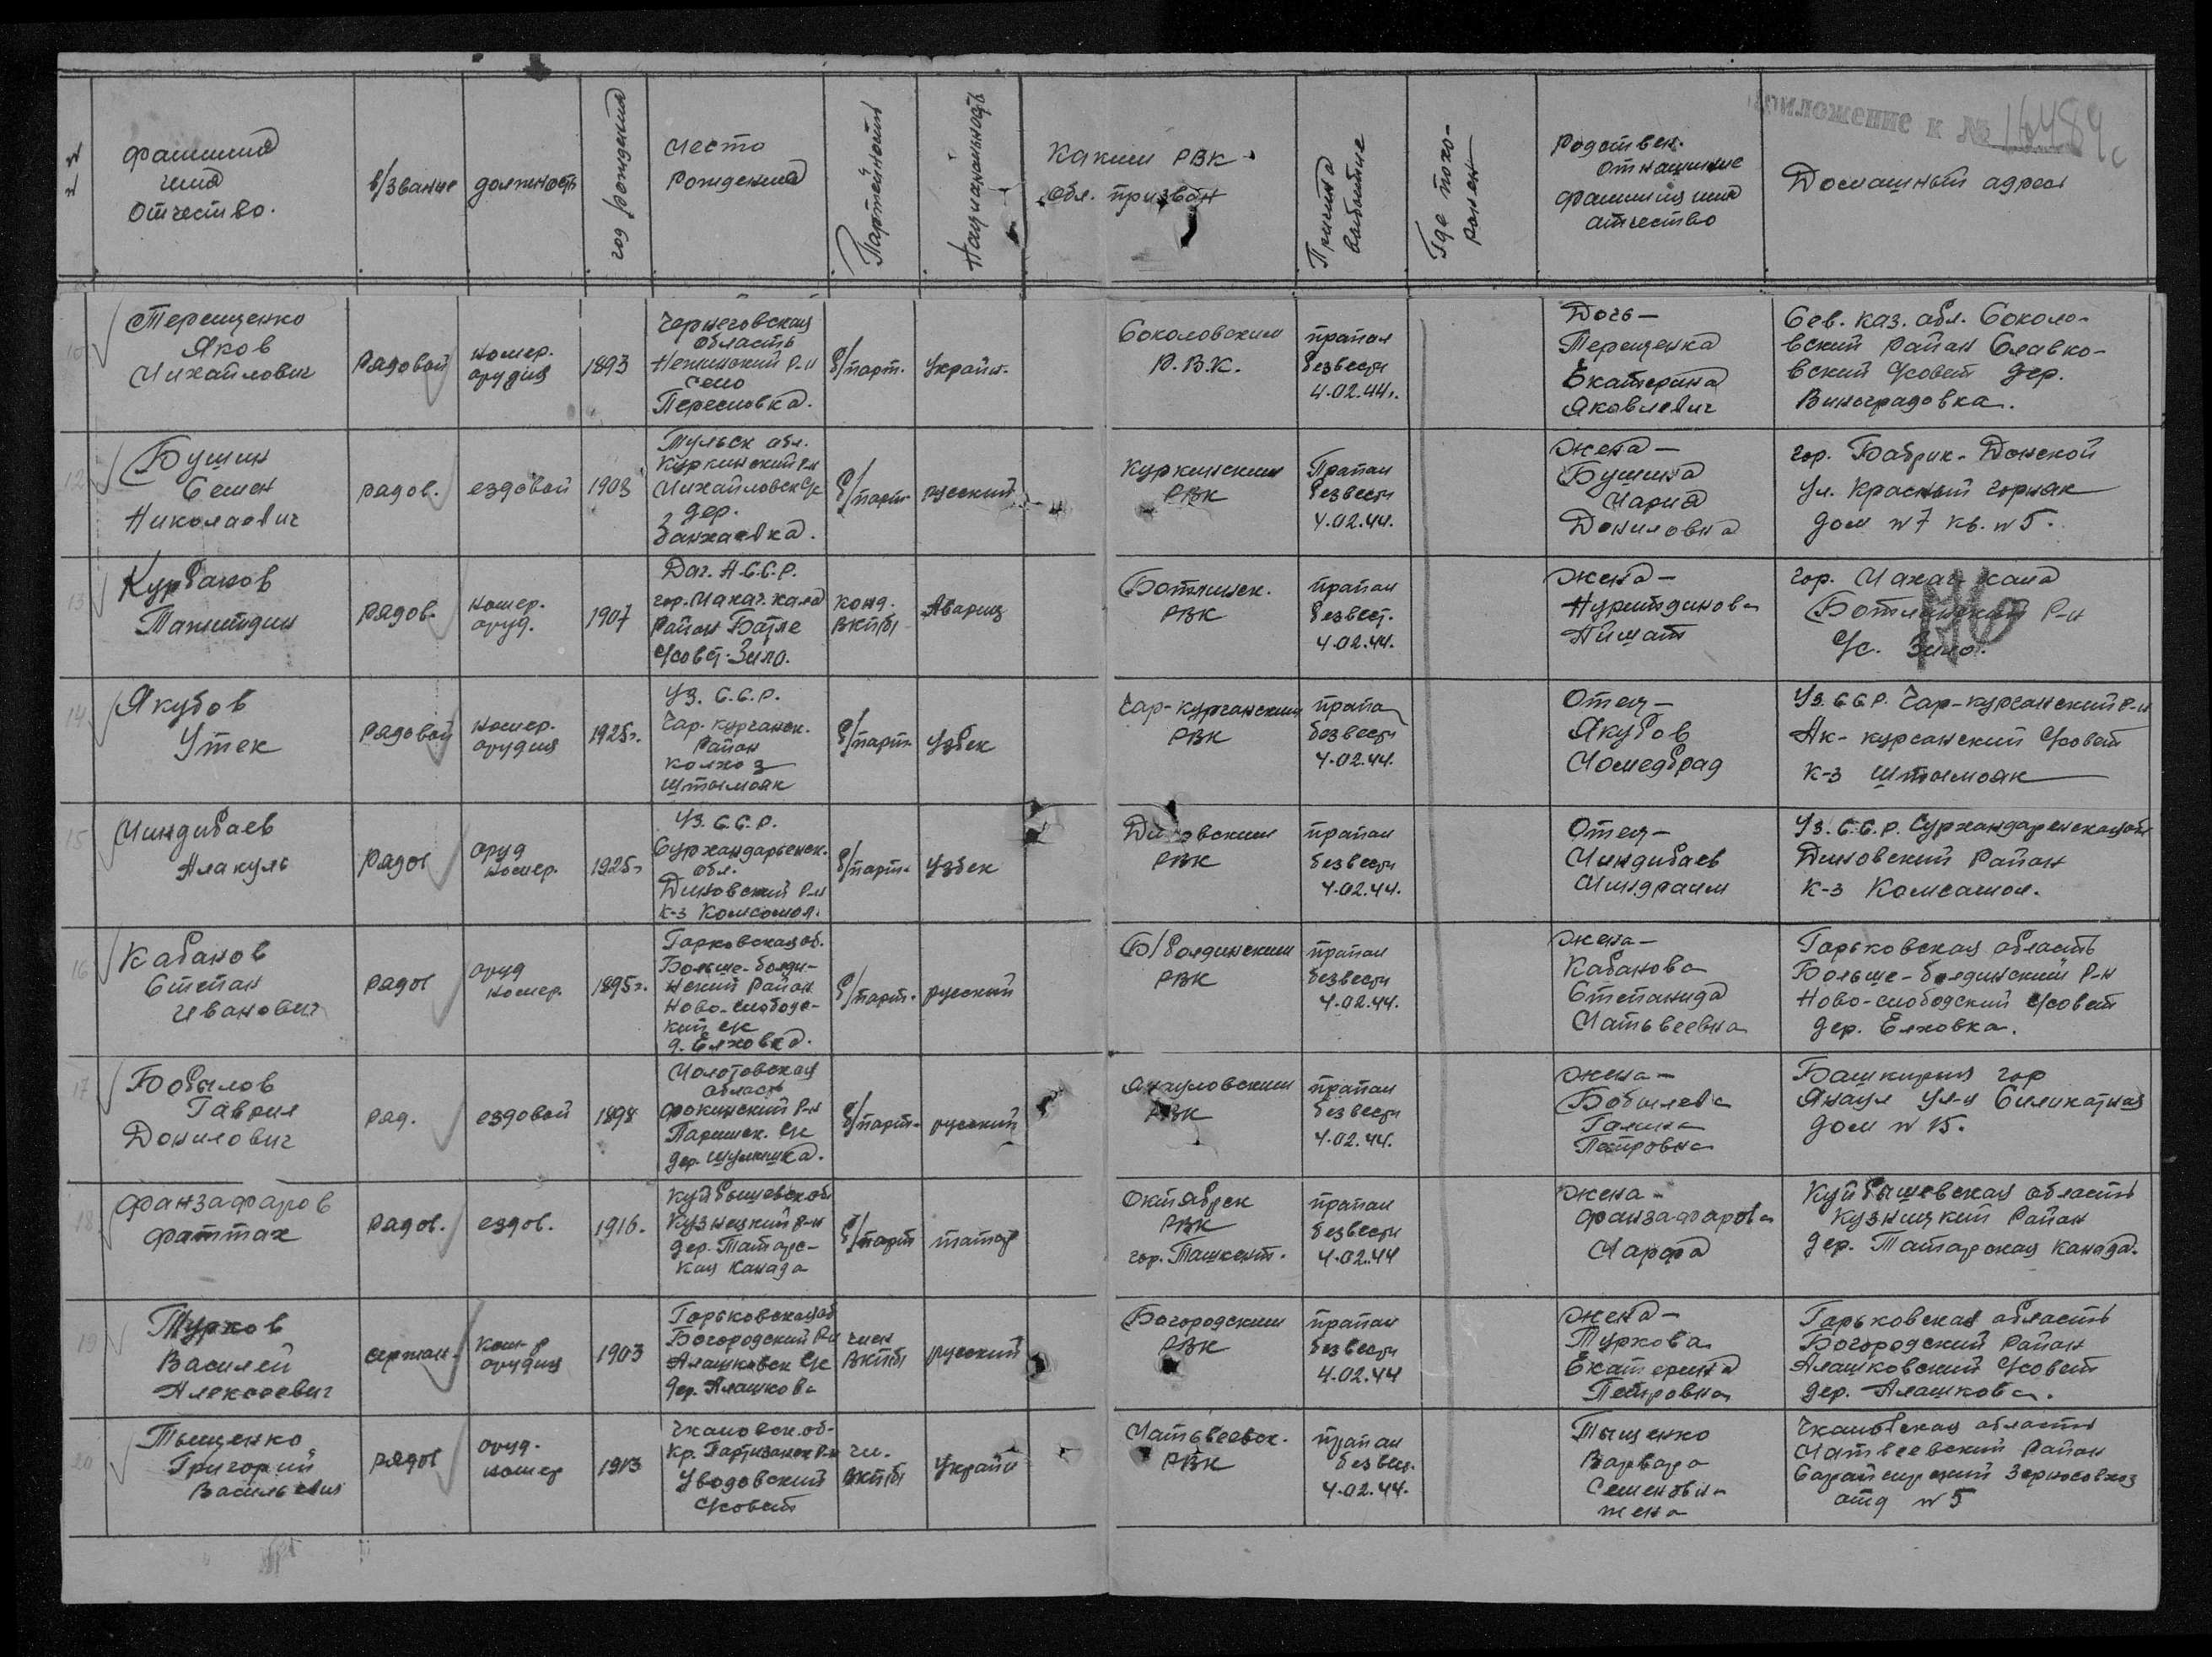 Приложение к № 16484с
№ №
фамилия
имя
Отчество.
в/звание
должность
год рождения
Место
Рождения
Партейность
Национальность
Каким РВК
Обл. призван
Причина
выбытие
Где похо-
ронен
Родствен.
Отнашние
фамилия имя
отчество
Домашный адрес
Терещенко
Яков
Михайлович
Рядовой
номер.
орудия
1893
Черниговская
область
Нежинский р-н
село
Переяовка.
б/парт.
Украин.
Соколовским
Р.В.К.
пропал
безвести
4.02.44г.
Дочь-
Терещенка
Екатерина
Яковлевич
Сев. каз. обл. Соколо-
вский район Славко-
вский С/совет дер.
Виноградовка.
12
Бушин
Семен
Николаевич
рядов.
ездовой
1903
Тульск обл.
Куркинский р-н
Михайловск с/с
дер.
б/парт.
русский
Куркинским
РВК
Пропал
безвести
4.02.44.
жена-
Бушина
Мария
Даниловна
гор. Бабрик-Донской
ул. Красный горняк
дом №7 кв. №5.
13
Курбанов
Тажитдин
рядов.
номер.
оруд.
1907
Даг. А.С.С.Р.
гор. Махач.кала
Район Батле
С/совт. Зило.
канд.
ВКП/б/
Авариц
Ботлинск.
РВК
пропал
безвест.
4.02.44.
жена-
Нуритдинова
Айшат
гор. Махач-кала
Ботлинский р-н
С/с. Зило.
14
Якубов
Утек
рядовой
номер.
орудия
1925г.
Уз. С.С.Р.
Чар-курганск.
Район
колхоз
Штымояк
б/парт.
Узбек
Чар-курганским
РВК
пропал
безвести
4.02.44.
Отец-
Якубов
Момедбрад
Уз. ССР. Чар-курганский р-н
Ак-курганский С/совет
к-з Штымояк
15
Миндибаев
Алакуль
рядов
оруд
номер.
1925г
Уз. С.С.Р.
Сурхандарьенск.
обл.
Диновский р-н
к-з Комсомол.
б/парт.
Узбек
Диновским
РВК
пропал
безвести
4.02.44.
Отец-
Миндибаев
Миндраим
Уз. С.С.Р. Сурхандаренская обл
Диновский Район
к-з Комсамол.
16
Кабанов
Степан
Иванович
рядов
оруд
номер.
1895г.
Горковская об.
Больше-болди-
нский район
Ново-слободс-
кий с/с
д. Елховка.
б/парт.
русский
Б/болдинским
РВК
пропал
безвести
4.02.44.
жена-
Кабанова
Степанида
Матьвеевна
Горьковская область
Больше-болдинский р-н
Ново-слободский С/совет
дер. Елховка.
17
Бобылов
Гаврил
Донилович
ряд.
ездовой
1898
Молотовская
область
Фокинский р-н
дер. Шулышка.
б/парт.
русский
Янауловским
РВК
пропал
безвести
4.02.44.
жена-
Бобылева
Галина
Петровна
Башкирия гор
Янаул ул-ц Силикатная
дом № 15.
18
Фанзафаров
Фаттах
рядов.
ездов.
1916.
Куйбышевск об
Кузнецкий р-н
дер. Татарс-
кая Канада
б/парт
татар
Октябрск
РВК
гор. Ташкент.
пропал
безвести
4.02.44
жена-
Фанзафарова
Марфа
Куйбышевская область
Кузницкий Район
дер. Татарская Канада.
19
Турков
Василей
Алексеевич
сержан.
Ком-р
орудия
1903
Горьковская об
Богородский р-н
Алашковск с/с
дер. Алашкова
член
ВКП/б/
русский
Богородским
РВК
пропал
безвести
4.02.44
жена-
Туркова
Екатерина
Петровна
Горьковская область
Богородский район
Алашковский С/совет
дер. Алашкова.
20
Тыщенко
Григорий
Васильевич
рядов
оруд.
номер
1913
Чкаловск. об-
Кр. Партизанск р-н
Уводовский
С/совет
чл.
ВКП/б/
Украин
Матьвеевск.
РВК
пропал
безвес.
4.02.44.
Тыщенко
Варвара
Семеновна
жена
Чкаловская область
Матвеевский район
Сарайгирский Зерносовхоз
отд №5